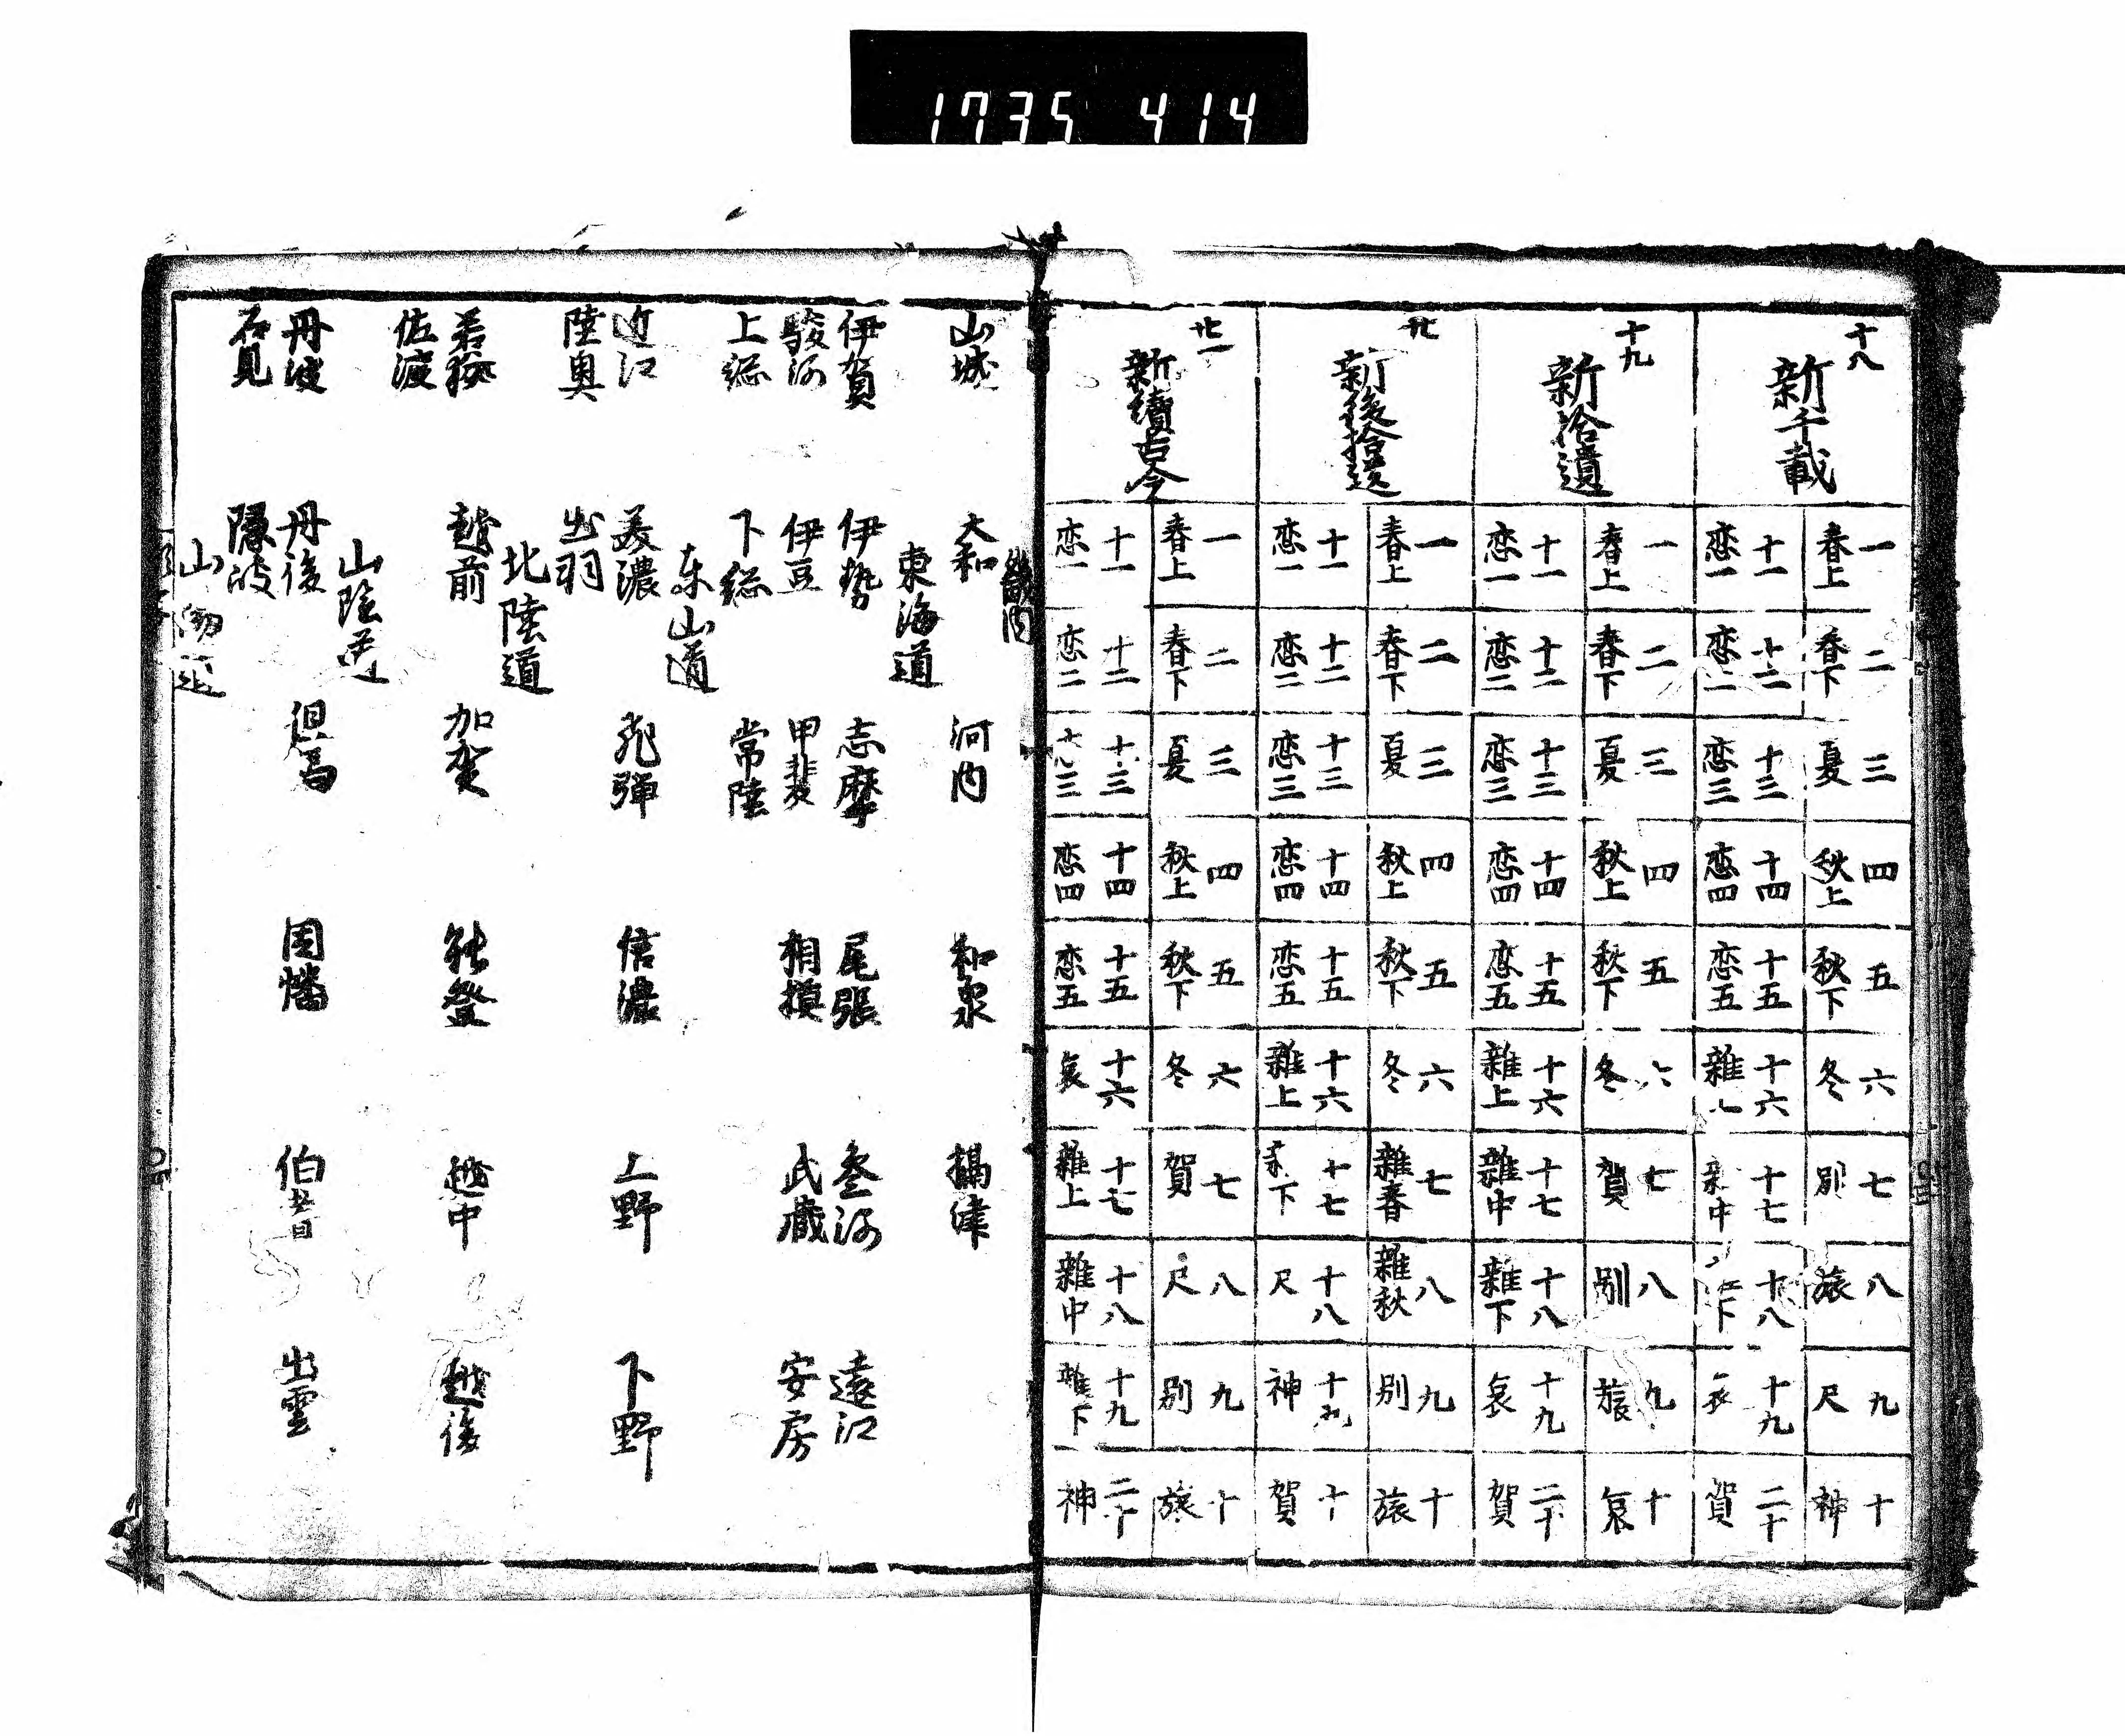 1735 414
十八
新千載
一 春上
二 春下
三 夏
四 秋上
五 秋下
六 冬
七 別
八 旅
九 尺
十 神
十一 恋一
十二 恋二
十三 恋三
十四 恋四
十五 恋五
十六 雜
十七 中
十八 下
十九 哀
二十 賀
十九
新拾遺
一 春上
二 春下
三 夏
四 秋上
五 秋下
六 冬
七 賀
八 別
九 旅
十 哀
十一 恋一
十二 恋二
十三 恋三
十四 恋四
十五 恋五
十六 雜上
十七 雜中
十八 雜下
十九 哀
二十 賀
廿
新後拾遺
一 春上
二 春下
三 夏
四 秋上
五 秋下
六 冬
七 雜春
八 雜秋
九 別
十 旅
十一 恋一
十二 恋二
十三 恋三
十四 恋四
十五 恋五
十六 雜上
十七 下
十八 尺
十九 神
十 賀
廿一
新續古今
一 春上
二 春下
三 夏
四 秋上
五 秋下
六 冬
七 賀
八 尺
九 別
十 旅
十一 恋一
十二 恋二
十三 三
十四 恋四
十五 恋五
十六 哀
十七 雜上
十八 雜中
十九 雜下
二十 神
畿内
山城 大和 河内 和泉 攝津
東海道
伊賀 伊勢 志摩 尾張 参河 遠江
駿河 伊豆 甲斐 相摸 武藏 安房
上総 下総 常陸
东山道
近江 美濃 飛弾 信濃 上野 下野
陸奥 出羽
北陸道
若狹 越前 加賀 能登 越中 越後
佐渡
山陰道
丹波 丹後 但馬 因幡 伯耆 出雲
石見 隠岐
山陽道